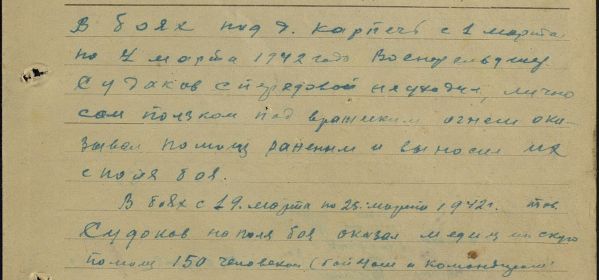 В боях под д. Карпечь с 1 марта
по 7 марта 1942 года Военфельдшер
Судаков с передовой не уходил, лично
сам ползком под вражеским огнем ока-
зывал помощь раненым и выносил их
с поля боя.
В боях с 19. марта по 23. марта 1942г. тов.
Судаков на поле боя оказал медицинскую
помощь 150 человекам (бойцам и командирам